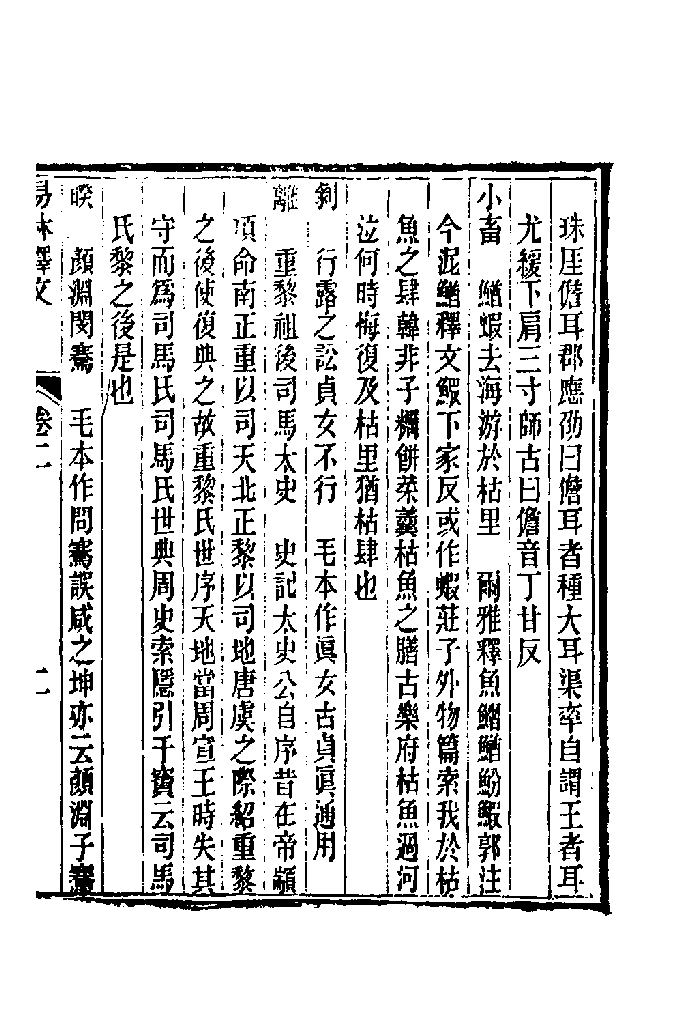 珠厓儋耳郡應劭曰儋耳者種大耳渠率自謂王者耳
尤緩下肩三寸師古曰儋音丁甘反
小畜　鰌蝦去海游於枯里　爾雅釋魚鰼鰌魵鰕郭注
今泥鰌釋文鰕下家反或作蝦莊子外物篇索我於枯
魚之肆韓非子糲餅菜羹枯魚之膳古樂府枯魚過河
泣何時悔復及枯里猶枯肆也
剝　行露之訟貞女不行　毛本作眞女古貞眞通用
離　重黎祖後司馬太史　史記太史公自序昔在帝顓
頊命南正重以司天北正黎以司地唐虞之際紹重黎
之後使復典之故重黎氏世序天地當周宣王時失其
守而爲司馬氏司馬氏世典周史索隱引干寶云司馬
氏黎之後是也
睽　顏淵閔騫　毛本作問騫誤咸之坤亦云顏淵子騫
易林釋文　卷二　二